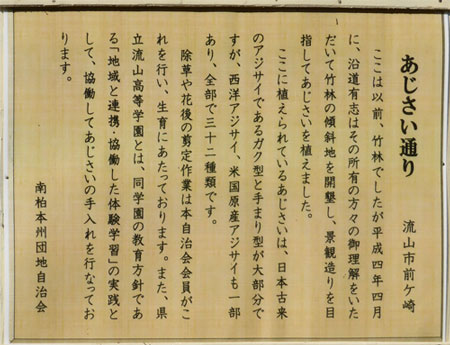 あじさい通り 流山市前ケ崎
ここは以前、竹林でしたが平成四年四月
に、沿道有志はその所有の方々の御理解をいた
だいて竹林の傾斜地を開墾し、景観造りを目
指してあじさいを植えました。
ここに植えられているあじさいは、日本古来
のアジサイであるガク型と手まり型が大部分で
すが、西洋アジサイ、米国原産アジサイも一部
あり、全部で三十二種類です。
除草や花後の剪定作業は本自治会会員がこ
れを行い、生育にあたっております。また、県
立流山高等学園とは、同学園の教育方針であ
る「地域と連携・協働した体験学習」の実践と
して、協働してあじさいの手入れを行なってお
ります。
南柏本州団地自治会